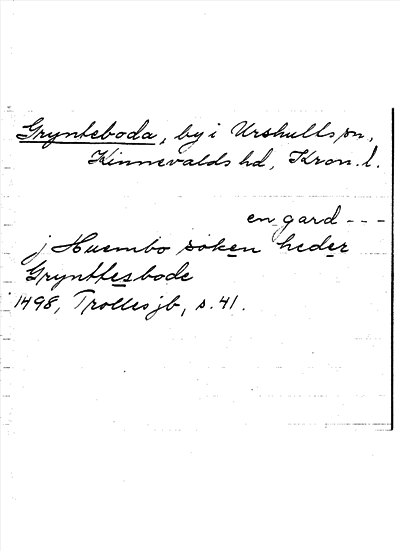 Grynteboda, by i Urshults sn,
Kinnevalds hd, Kron. l.
en gard - - -
j Huembo soken heder
Grynttesbode
1498, Trolles jb, s. 41.